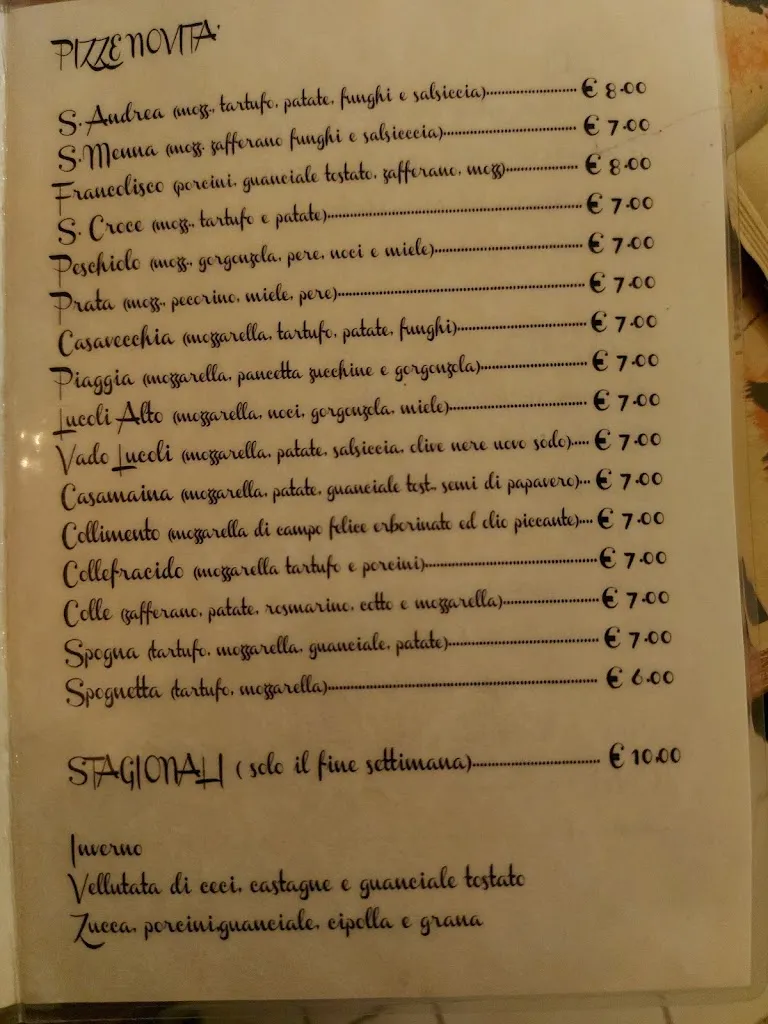 PIZZE NOVITA'
S. Andrea (mozz., tartufo, patate, funghi e salsiccia)........................ € 8.00
S. Menna (mozz. zafferano funghi e salsicccia)........................ € 7.00
Francolisco (porcini, guanciale tostato, zafferano, mozz)........................ € 8.00
S. Croce (mozz., tartufo e patate)........................ € 7.00
Peschiolo (mozz., gorgonzola, pere, noci e miele)........................ € 7.00
Prata (mozz., pecorino, miele, pere)........................ € 7.00
Casavecchia (mozzarella, tartufo, patate, funghi)........................ € 7.00
Piaggia (mozzarella, pancetta zucchine e gorgonzola)........................ € 7.00
Lucoli Alto (mozzarella, noci, gorgonzola, miele)........................ € 7.00
Vado Lucoli (mozzarella, patate, salsiccia, olive nere uovo sodo)..... € 7.00
Casamaina (mozzarella, patate, guanciale tost., semi di papavero)... € 7.00
Collimento (mozzarella di campo felice erborinato ed olio piccante)... € 7.00
Collefracido (mozzarella tartufo e porcini)........................ € 7.00
Colle (zafferano, patate, rosmarino, cotto e mozzarella)........................ € 7.00
Spogna (tartufo, mozzarella, guanciale, patate)........................ € 7.00
Spognetta (tartufo, mozzarella)........................ € 6.00
STAGIONALI ( solo il fine settimana)........................ € 10.00
Inverno
Vellutata di ceci, castagne e guanciale tostato
Zucca, porcini,guanciale, cipolla e grana